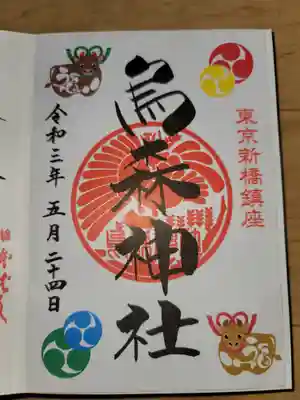 東京新橋鎮座
烏森神社
令和三年 五月 二十四日